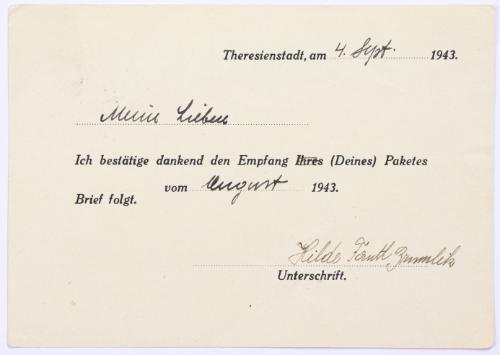 Theresienstadt, am 4. Sept. 1943.
Meine Lieben
Ich bestätige dankend den Empfang Ihres (Deines) Paketes
vom August 1943.
Brief folgt.
Hilde
Unterschrift.